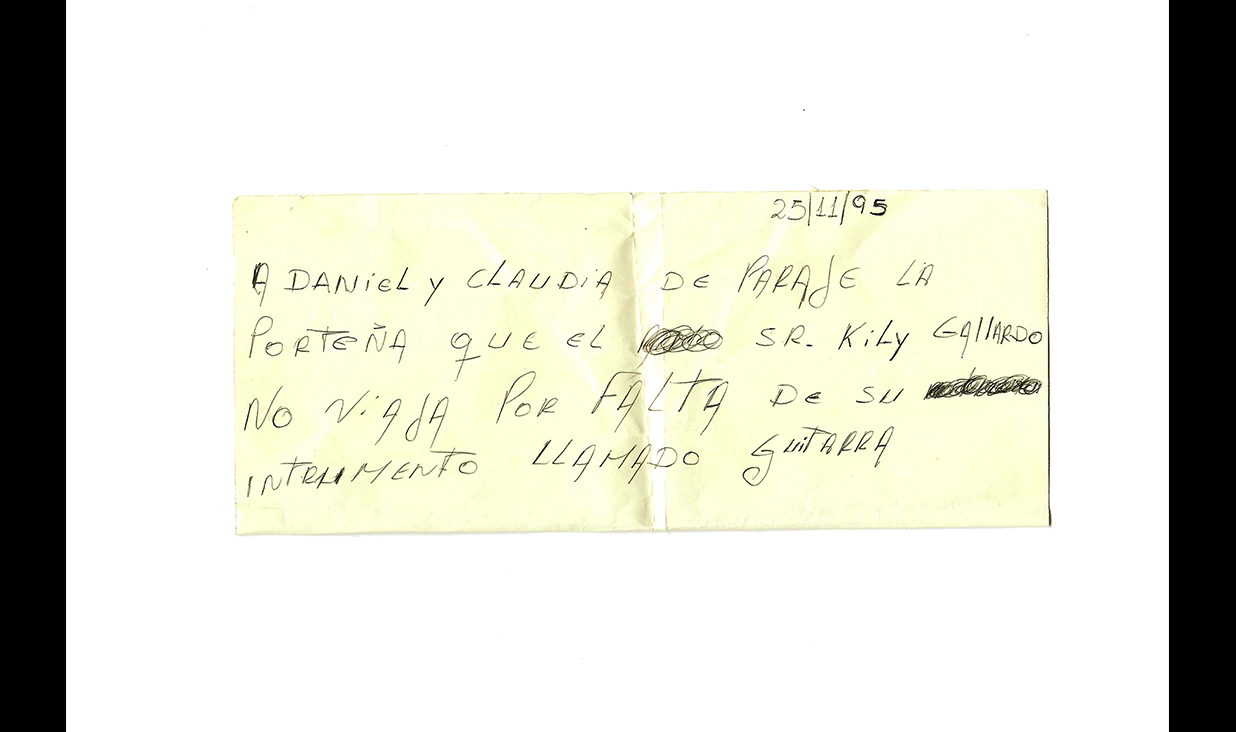 25/11/95
A DANIEL Y CLAUDIA DE PARAJE LA
PORTEÑA QUE EL SR. KILY GALLARDO
NO VIAJA POR FALTA DE SU
INTRUMENTO LLAMADO GUITARRA